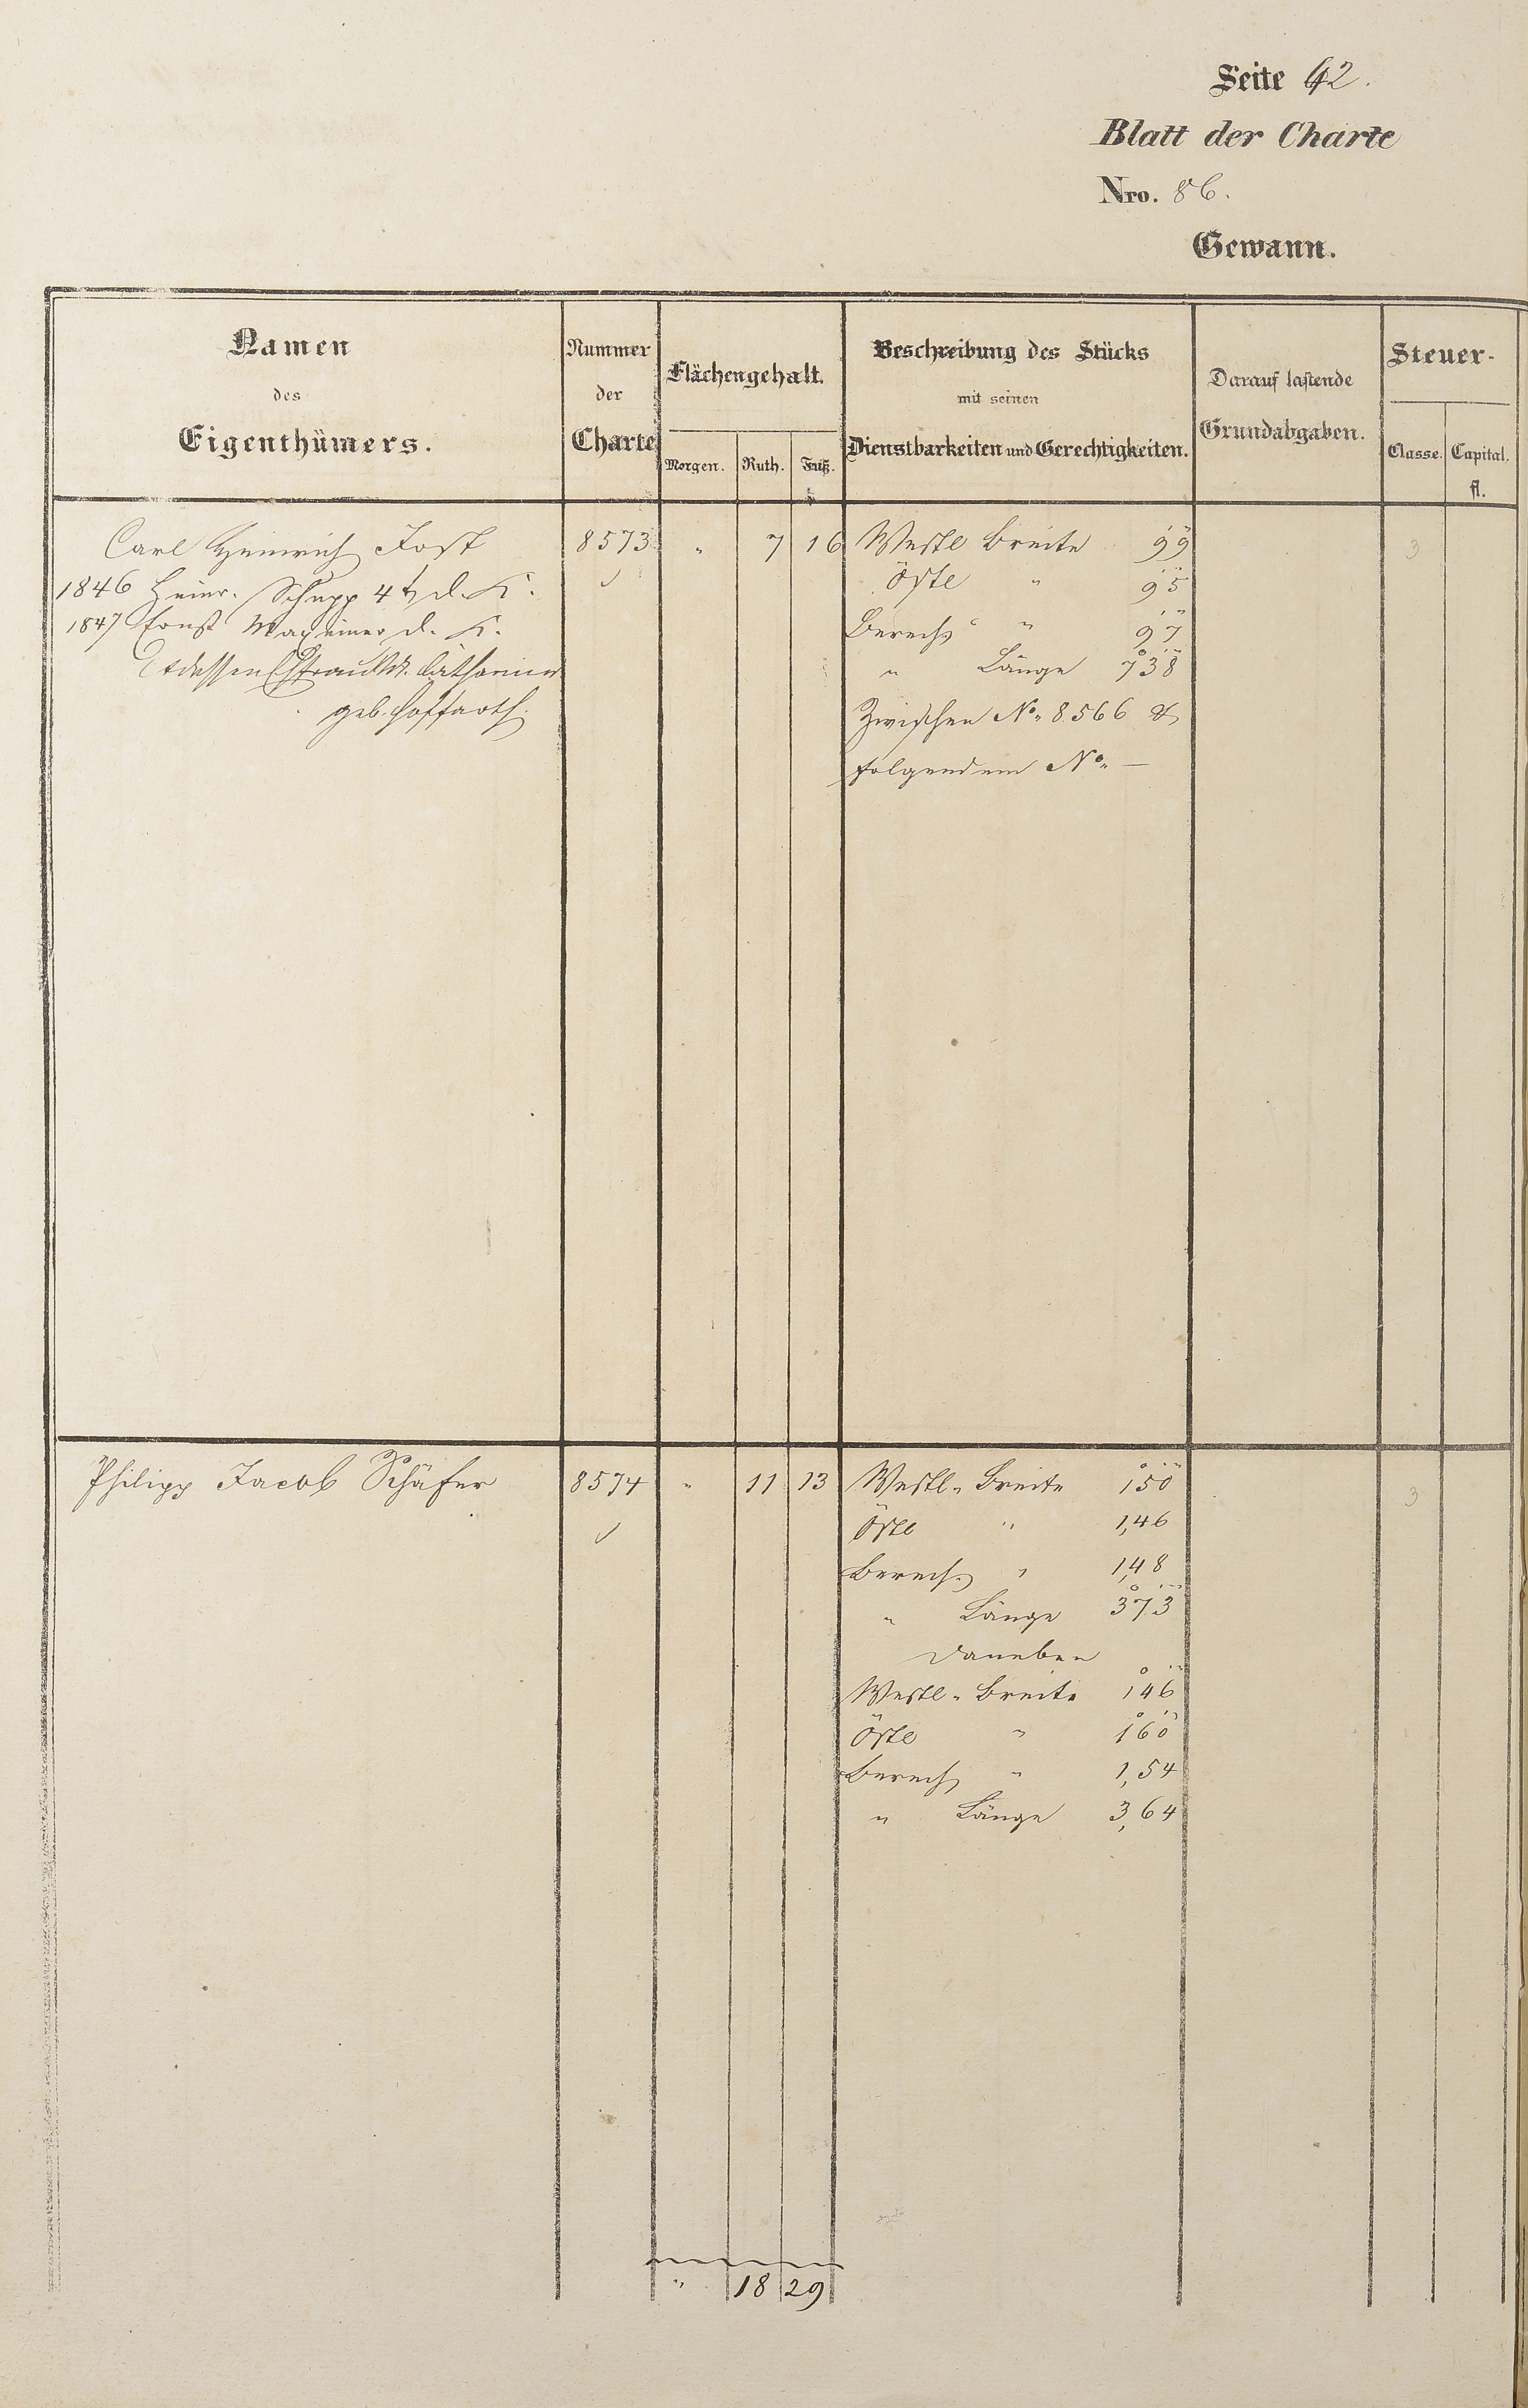 Seite 42.
Blatt der Charte
Nro. 86.
Gewann.
Namen
des
Eigenthümers.
Nummer
der
Charte
Flächengehalt.
Morgen. Ruth. Fuß.
Beschreibung des Stücks
mit seinen
Dienstbarkeiten und Gerechtigkeiten.
Darauf lastende
Grundabgaben.
Steuer-
Classe. Capital.
fl.
Carl Heinrich Jost 8573 " 7 16 Westl Breite 99 3
1846 Heinr. Schupp 4t d. K. Östl " 95
1847 Ernst Maxeiner d. K. Berech " 97
Et dessen Ehefrau Catharine " Länge 738
geb. Hoffarth. Zwischen No. 8566 &
folgendem No. —
Philipp Jacob Schäfer 8574 " 11 13 Westl. Breite 150 3
Östl " 1,46
Berech. " 1,48
" Länge 373
Daneben
Westl. Breite 146
Östl " 160
Berech " 1,54
" Länge 3,64
" 18 29